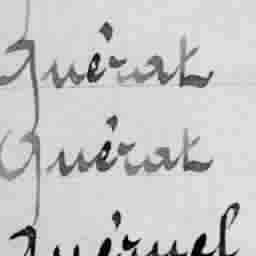 Guérat
Guérat
Guéruel